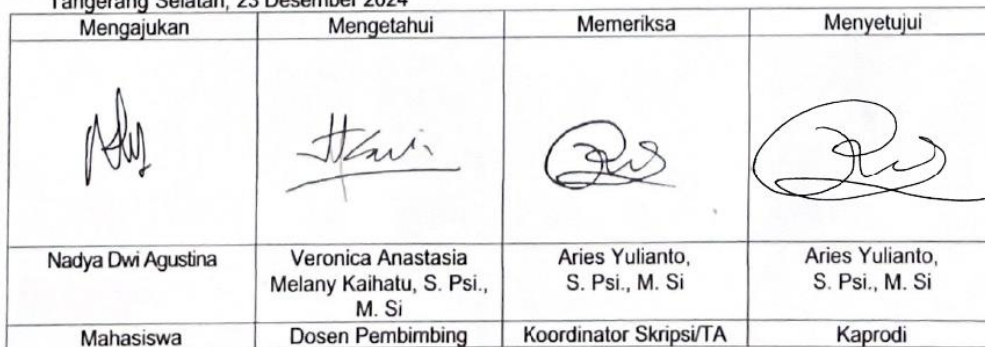 Tangerang Selatan, 23 Desember 2024
Mengajukan Mengetahui Memeriksa Menyetujui
Nadya Dwi Agustina Veronica Anastasia Melany Kaihatu, S. Psi., M. Si Aries Yulianto, S. Psi., M. Si Aries Yulianto, S. Psi., M. Si
Mahasiswa Dosen Pembimbing Koordinator Skripsi/TA Kaprodi